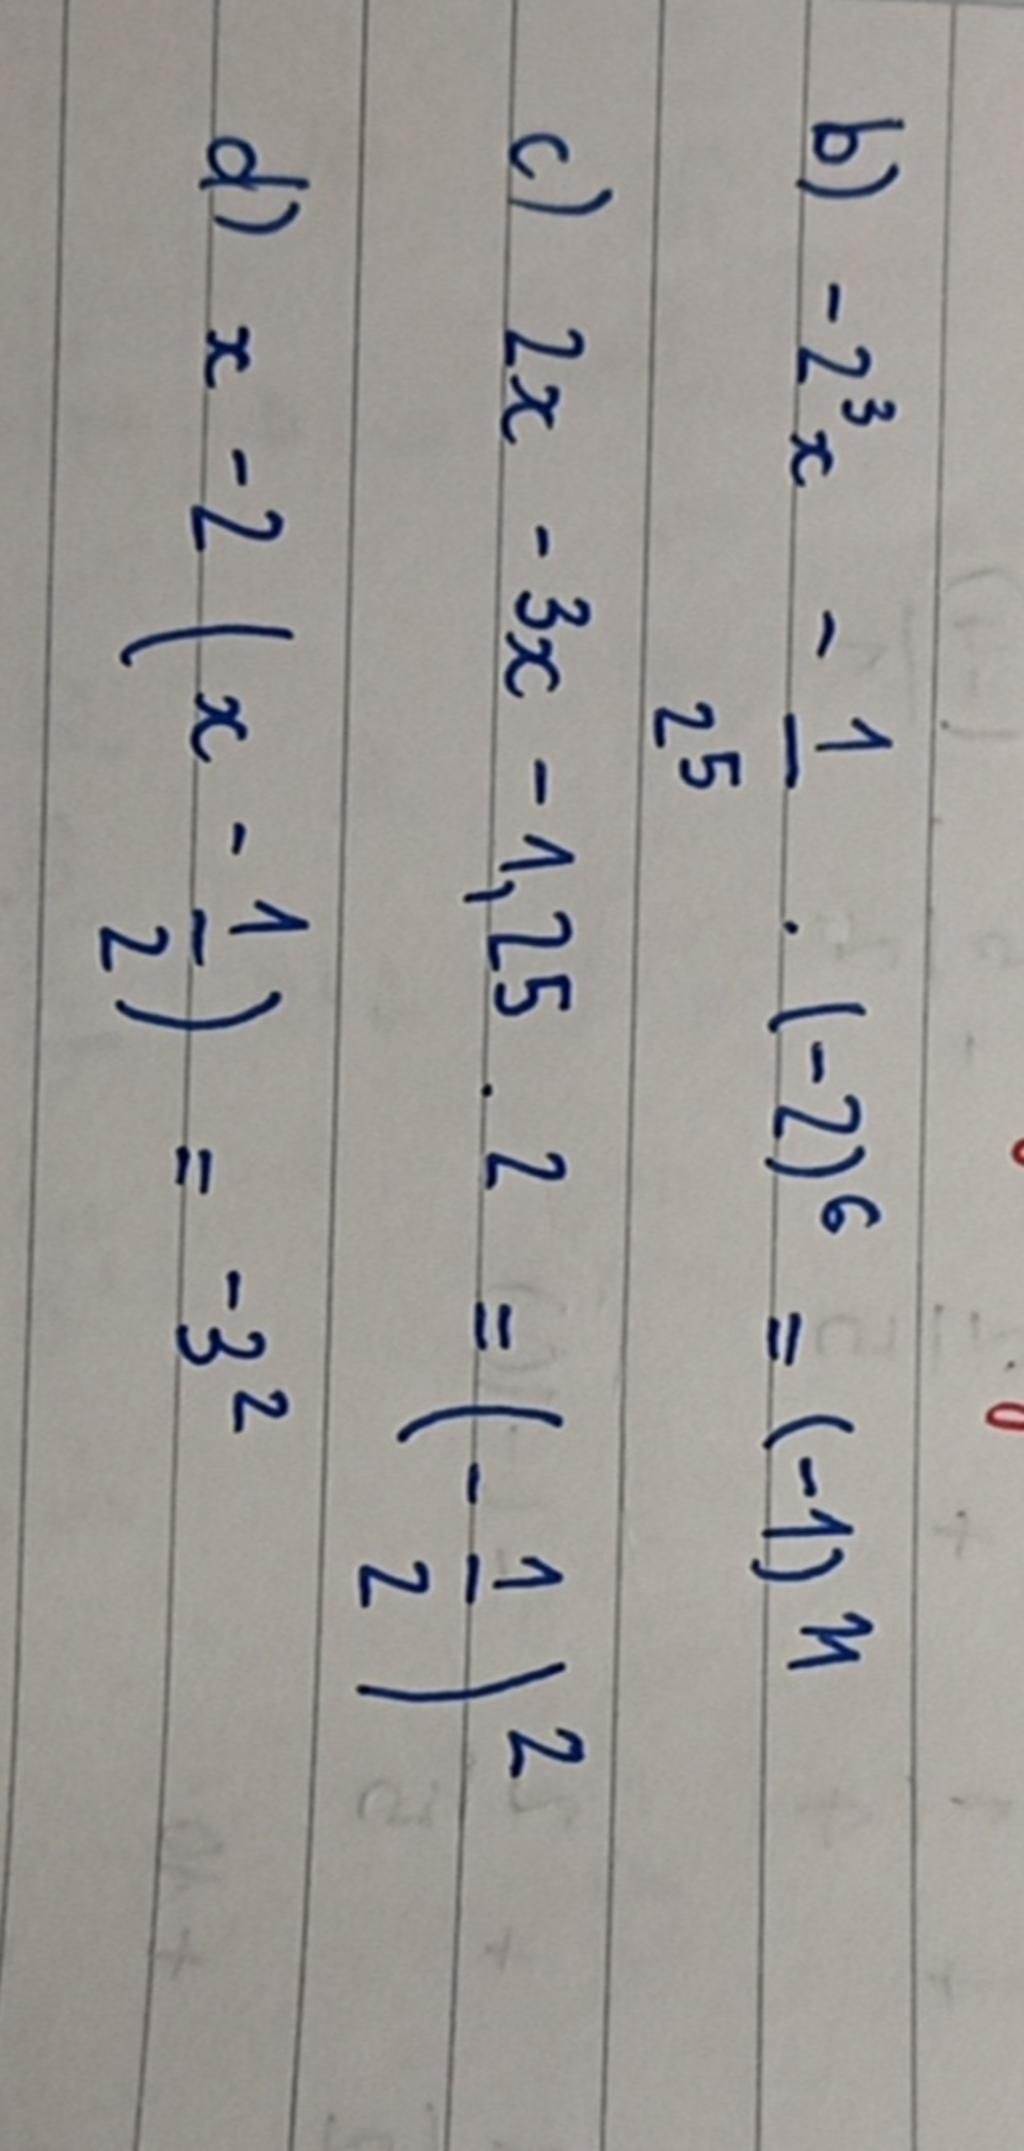 b) -2³x - 1/2⁵ . (-2)⁶ = (-1)ⁿ
c) 2x - 3x - 1,25 . 2 = (-1/2)²
d) x - 2 (x - 1/2) = -3²